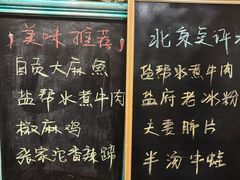 美味推荐
自贡大麻鱼
盐帮水煮牛肉
椒麻鸡
张家沱香辣蹄
北京点评
盐帮水煮牛肉
盐府老冰粉
夫妻肺片
半汤牛蛙